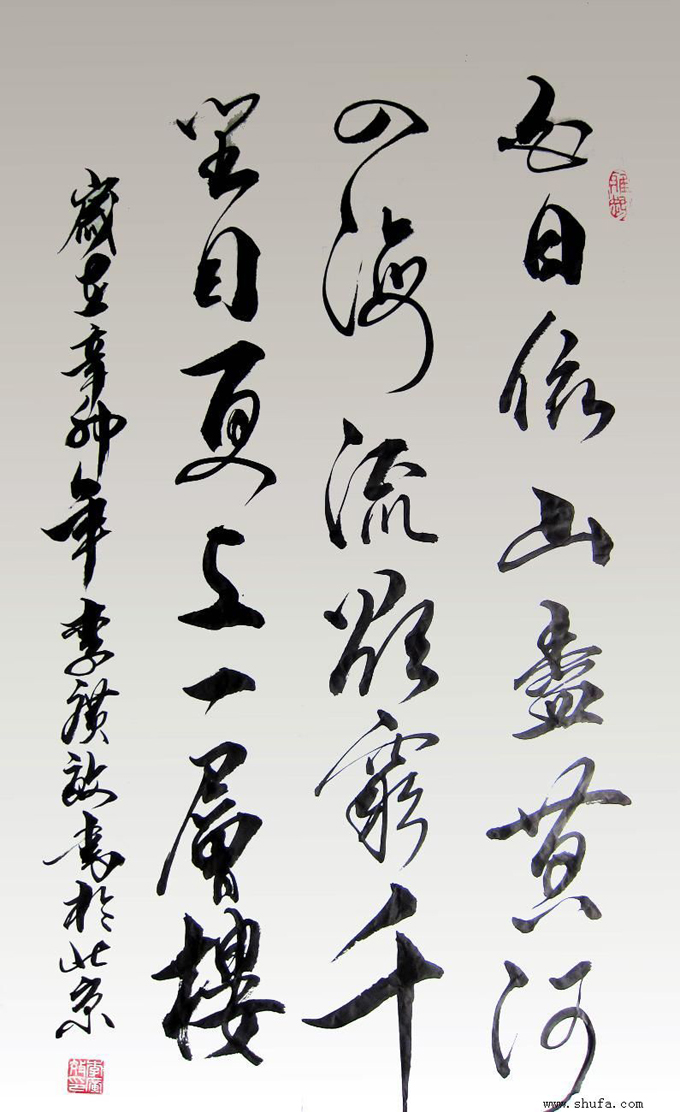 白日依山盡黃河
入海流欲窮千
里目更上一層樓
歲在辛卯年李廣效書於北京
www.shufa.com